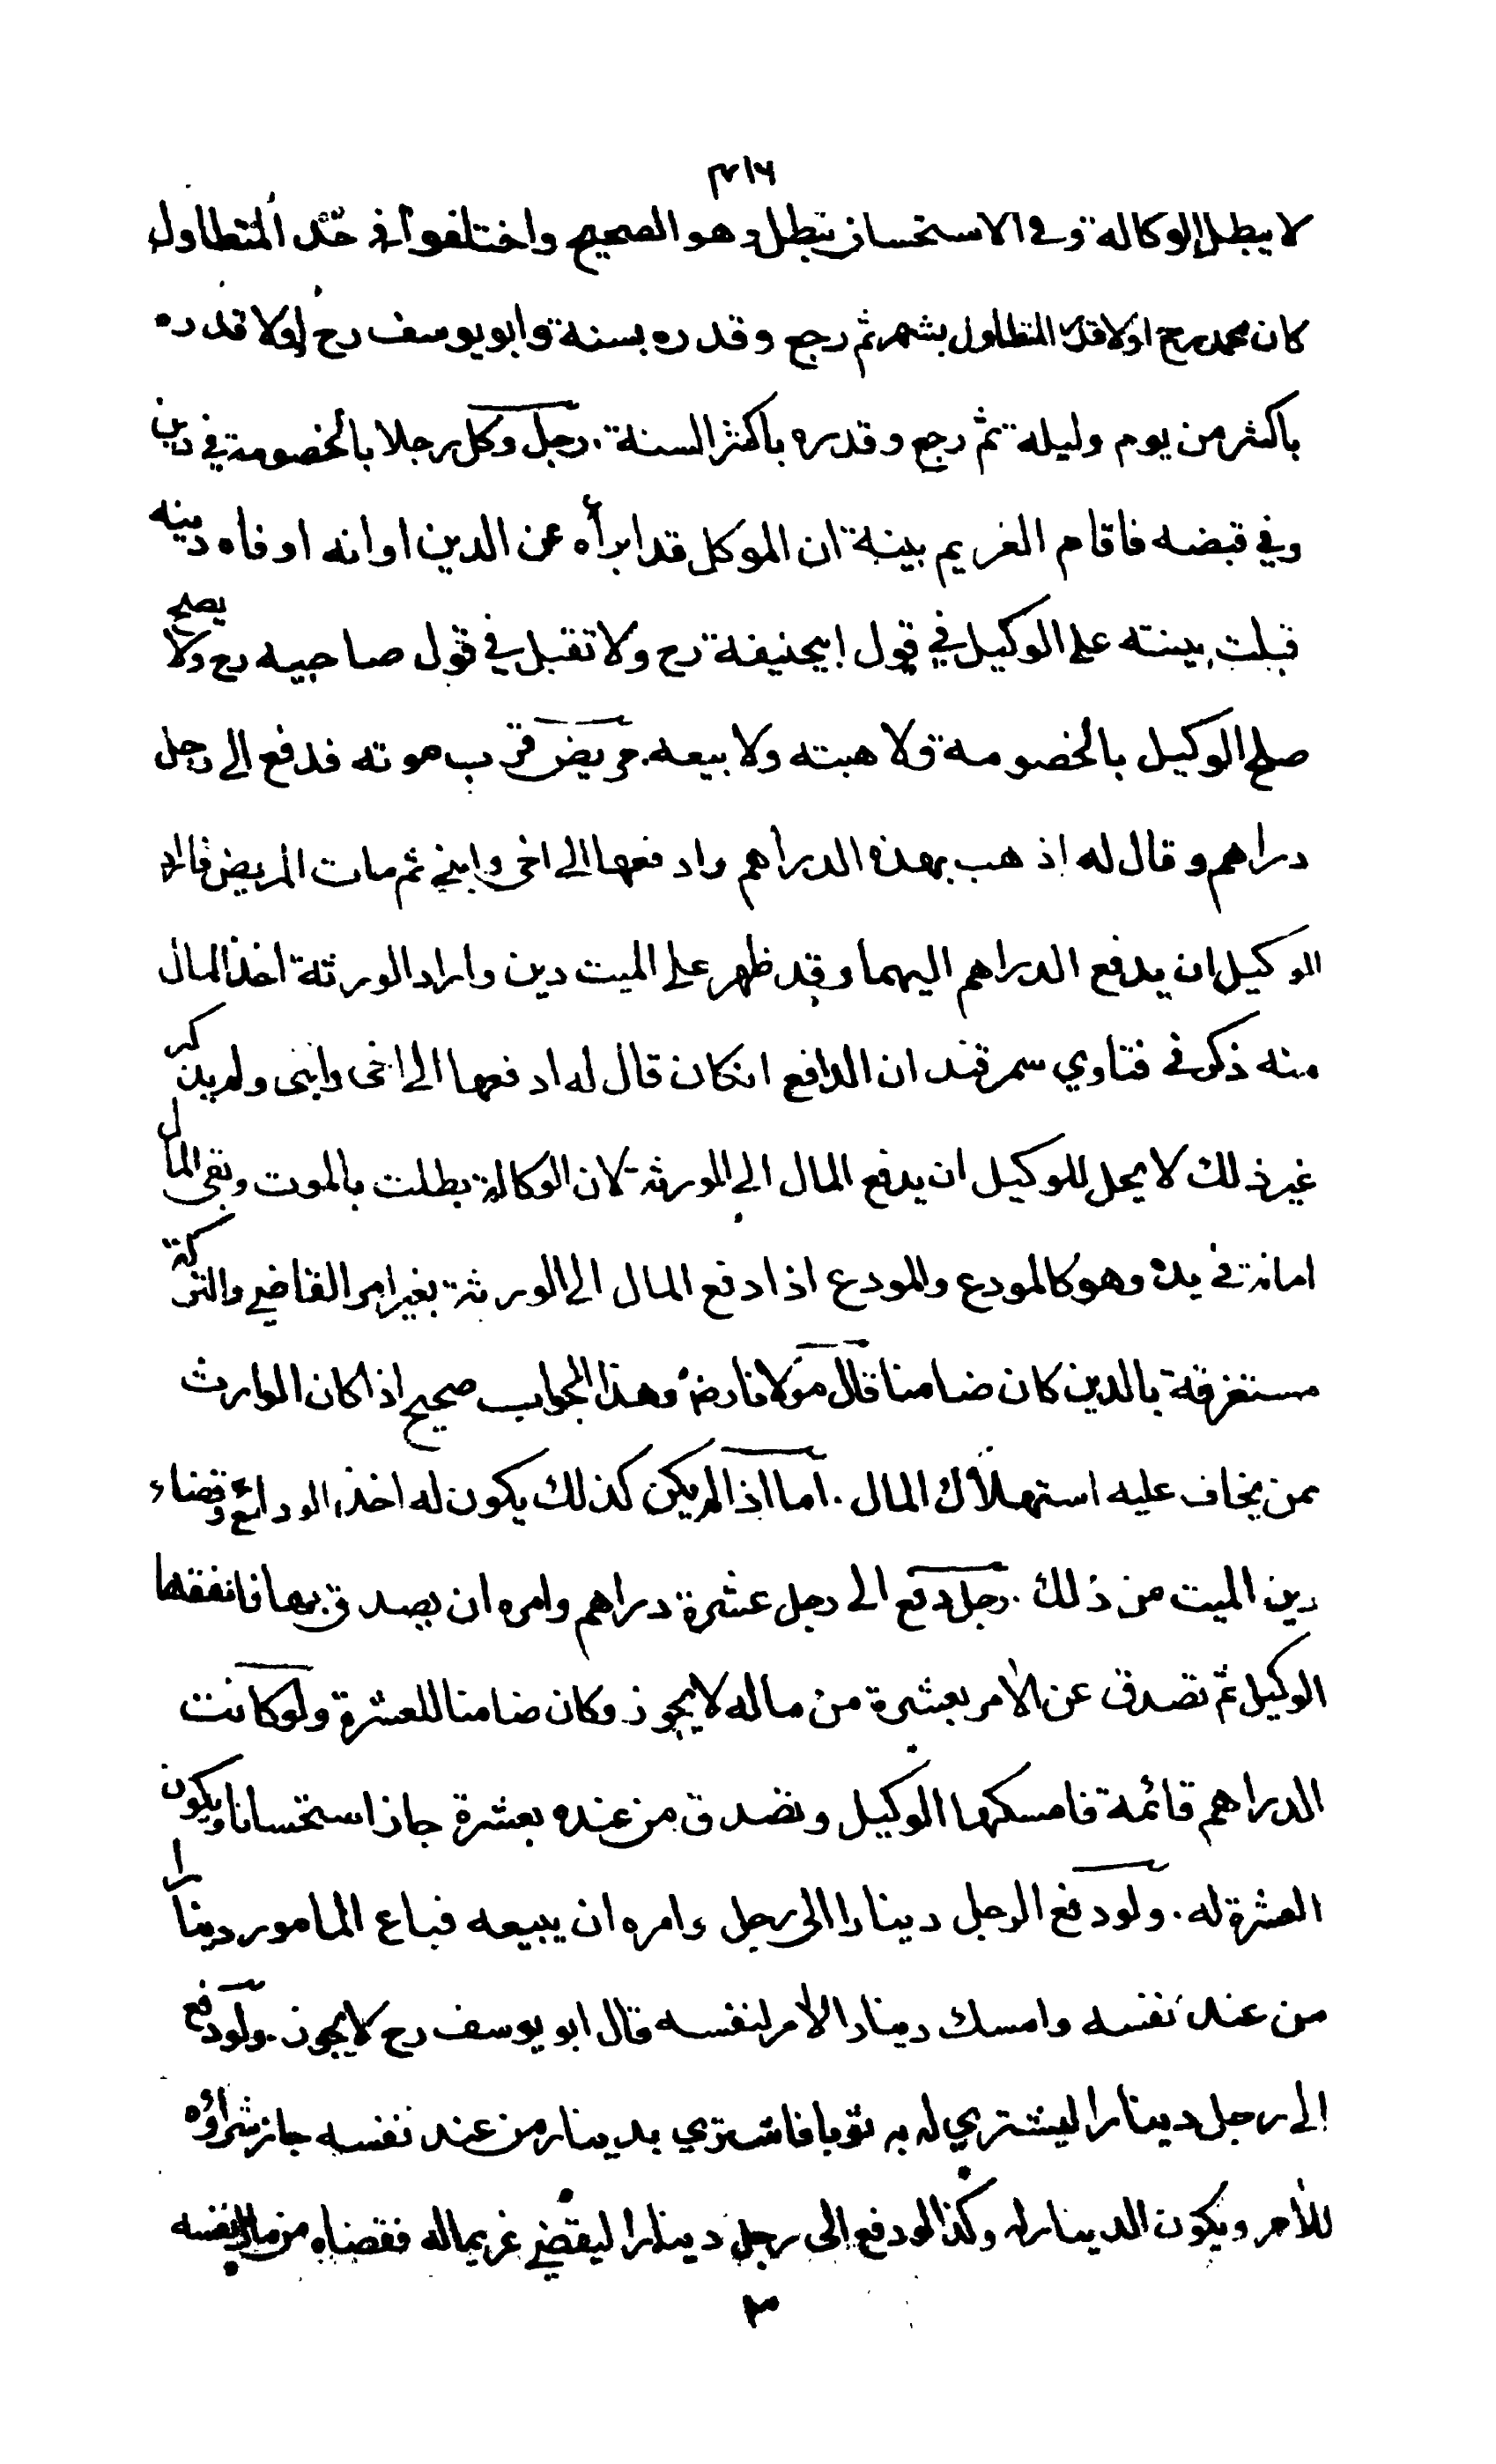 ٣١٦
لا يبطل الوكالة وفى الاستحسان تبطل وهو الصحيح واختلفوا فى حدّ المتطاول
كان محمد رح اولا قدر المتطاول بشهر ثم رجع وقدره بسنة وابو يوسف رح اولا قدره
باكثر من يوم وليلة ثم رجع وقدره باكثر السنة . رجل وكل رجلا بالخصومة في دين
وفي قبضه فاقام الغريم بينة ان الموكل قد ابرأه عن الدين او انه اوفاه دينه
قبلت بينته على الوكيل في قول ابيحنيفة رح ولا تقبل في قول صاحبيه رح ولا يصح
صلح الوكيل بالخصومة ولا هبته ولا بيعه . مريض قرب موته فدفع الى رجل
دراهم وقال له اذهب بهذه الدراهم وادفعها الى اخى وابني ثم مات المريض فاراد
الوكيل ان يدفع الدراهم اليهما وقد ظهر على الميت دين واراد الورثة اخذ المال
منه ذكر في فتاوي سمرقند ان الدافع انكان قال له ادفعها الى اخى وابنى ولم يذكر
غير ذلك لا يحل للوكيل ان يدفع المال الى الورثة لان الوكالة بطلت بالموت وبقى المال
امانة في يده وهو كالمودع والمودع اذا دفع المال الى الورثة بغير امر القاضي والتركة
مستغرقة بالدين كان ضامنا قال مولانا رض وهذا الجواب صحيح اذا كان الوارث
ممن يخاف عليه استهلاك المال . اما اذا لم يكن كذلك يكون له اخذ الودائع وقضاء
دين الميت من ذلك . رجل دفع الى رجل عشرة دراهم وامره ان يصدق بها فانفقها
الوكيل ثم تصدق عن الآمر بعشرة من ماله لا يجوز وكان ضامنا للعشرة ولو كانت
الدراهم قائمة فامسكها الوكيل وتصدق من عنده بعشرة جاز استحسانا ويكون
العشرة له . ولو دفع الرجل دينارا الى رجل وامره ان يبيعه فباع المامور دينارا
من عند نفسه وامسك دينار الآمر لنفسه قال ابو يوسف رح لا يجوز . ولو دفع
الى رجل دينارا ليشتري له به ثوبا فاشترى بدينار من عند نفسه جاز شراؤه
للآمر ويكون الدينار له وكذا لو دفع الى رجل دينارا ليقضي غريما له فقضاه من مال نفسه